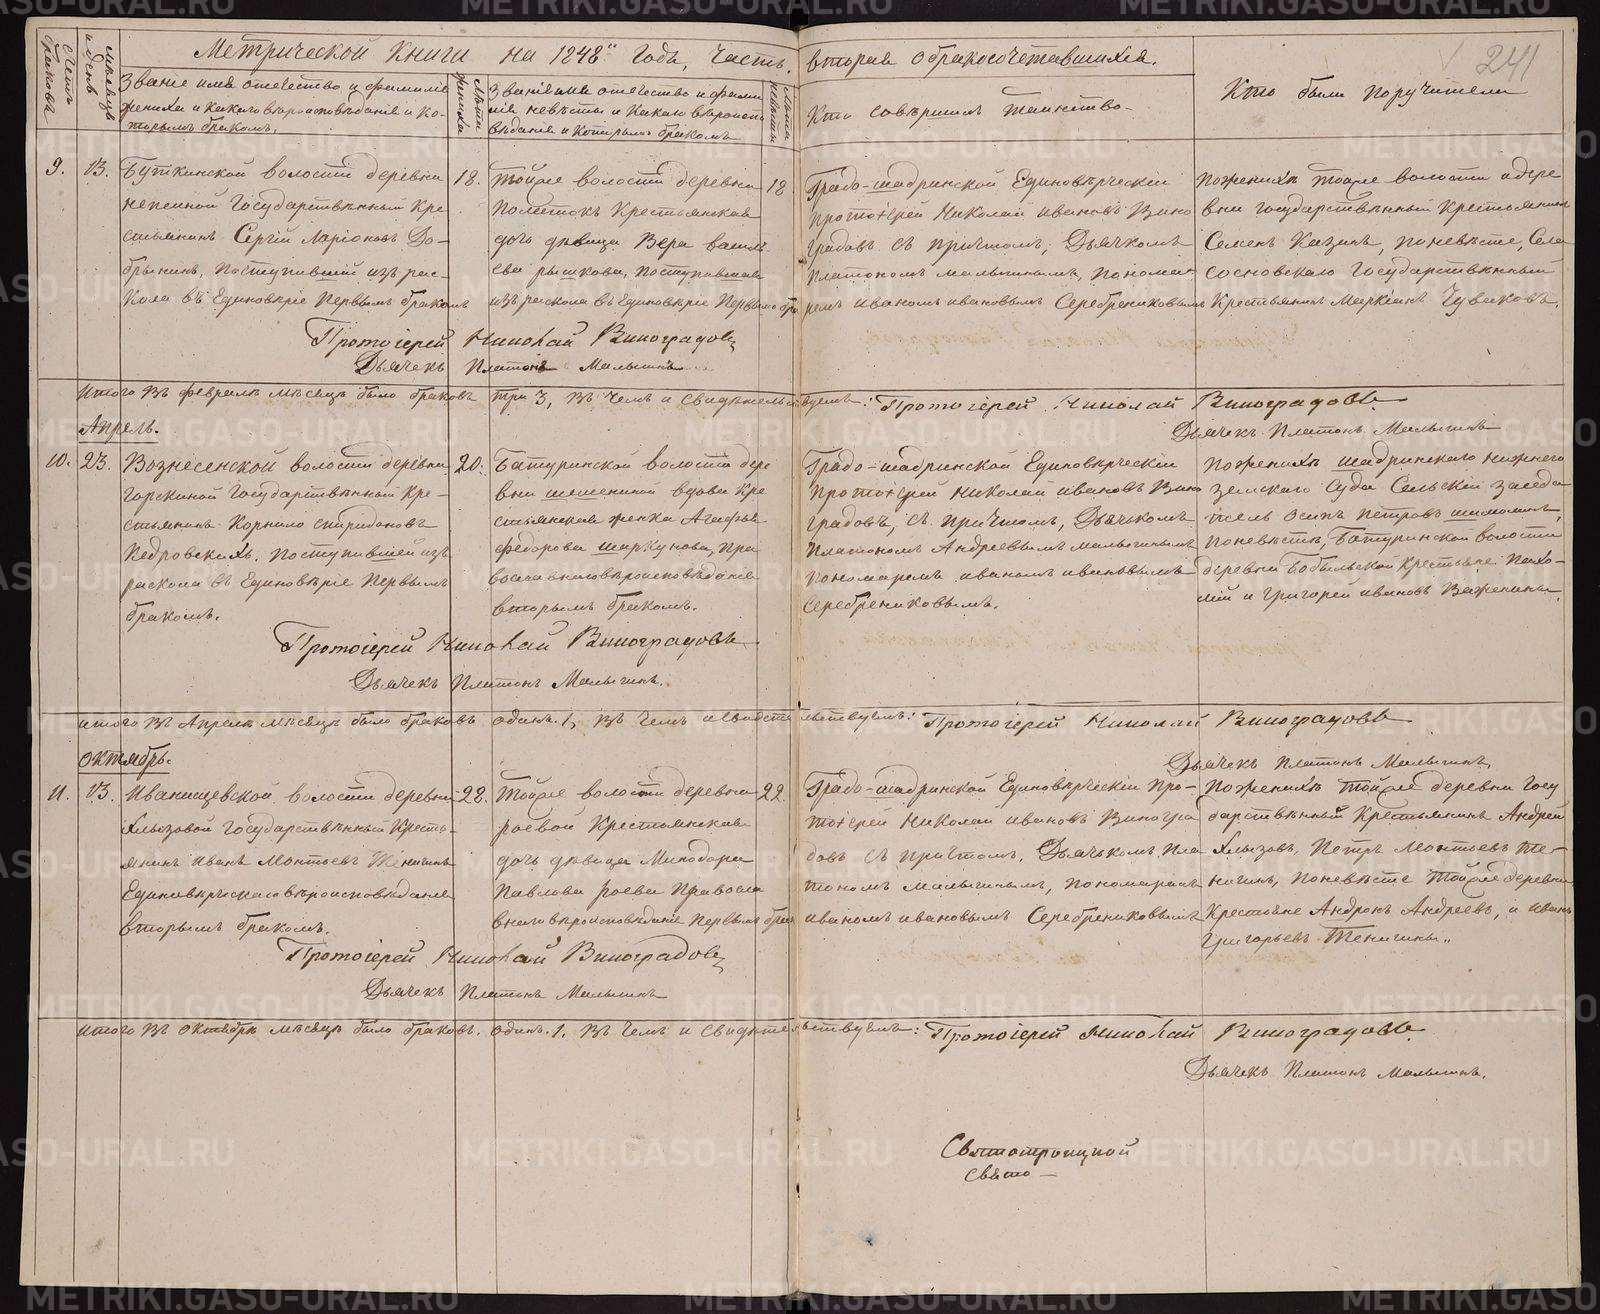 Метрической Книги на 1848.го Года, Часть вторая о бракосочетавшихся.
241
Счетъ браковъ
Месяцъ и день
Званіе имя отечество и фамилія
жениха и какого вѣроисповѣданія и ко-
торымъ бракомъ.
Лѣта жениха
Званіе имя отечество и фами
лія невѣсты и какаго вѣроиспо
вѣданія и которымъ бракомъ
Лѣта невѣсты
Кто совершилъ таинство
Кто были поручители
9.
13.
Буткинской волости деревни
непеиной Государственный Кре
стьянинъ Сергій Ларіоновъ До-
брынинъ, поступившій изъ рас-
кола въ Единовѣріе Первымъ бракомъ
18.
Тойже волости деревни
Полатокъ Крестьянская
дочь девица Вера васил
ева рышкова, поступившая
изъ раскола въ Единовѣріе Первымъ бра
18
Градо-шадринской Единовѣрческіи
протоіерей Николай ивановъ Вино
градовъ съ причтомъ, Дьячкомъ
Платономъ малыгинымъ, понома
ремъ иваномъ ивановымъ Серебрениковымъ
по женихѣ тойже волости и дере
вни государственный Крестьянинъ
Семенъ Казинъ, по невѣсте, Села
сосновскаго Государственный
Крестьянинъ Маркіанъ Чуваковъ.
Протоіерей Николай Виноградовъ
Дьячекъ Платонъ Малыгинъ
Итого въ февралѣ мѣсяцѣ было браковъ три 3, въ чемъ и свидѣтельствуемъ: Протоіерей Николай Виноградовъ.
Дьячекъ Платонъ Малыгинъ
Апрель.
10.
23.
Вознесенской волости деревни
горскиной Государственный Кре-
стьянинъ Корнило спиридоновъ
Кедровскихъ, поступившей изъ
раскола въ Единовѣріе Первымъ
бракомъ.
20.
Батуринской волости дере
вни шешениной вдова Кре
стьянская женка Агафья
федорова шаркунова, пра
вославнаго вѣроисповѣданія
вторымъ бракомъ.
Градо-шадринской Единовѣрческіи
протоіерей Николай ивановъ Вино
градовъ, съ причтомъ, Дьячькомъ
Платономъ Андреевымъ малыгинымъ
Пономаремъ иваномъ ивановымъ
Серебрениковымъ.
по женихѣ шадринскаго нижнего
земскаго Суда Сельскій заседа
тель осипъ петровъ шимолинъ,
по невѣстѣ, Батуринской волости
деревни Бобыльской Крестьяне Пахо-
мій и григорей ивановъ Важенины.
Протоіерей Николай Виноградовъ
Дьячекъ Платонъ Малыгинъ.
итого въ Апрелѣ мѣсяцѣ было браковъ одинъ. 1, въ чемъ и свидетельствуемъ: Протоіерей Николай Виноградовъ
Дьячекъ Платонъ Малыгинъ
октябрь.
11.
13.
Иванищевской волости деревни
Хлызовой государственный Кресть-
янинъ иванъ Монтьевъ Тенигинъ
Единоверческаго вѣроисповѣданія
вторымъ бракомъ.
28.
Тойже волости деревни
роевой Крестьянская
дочь девица Минодара
Павлова роева Правосла
внаго вѣроисповѣданія первымъ брак
22.
Градо-шадринской Единовѣрческіи Про-
тоіерей Николаи ивановъ Виногра
довъ съ причтомъ, Дьячькомъ Пла
тономъ Малыгинымъ, пономаремъ
иваномъ ивановымъ Серебрениковымъ
по женихѣ тойже деревни госу
дарственный Крестьянинъ Андрей
Хлызовъ, Петръ Монтьевъ Те-
нигинъ, по невѣсте тойже деревни
крестьяне Андронъ Андреевъ, и иванъ
григорьевъ Тенигины„
Протоіерей Николай Виноградовъ
Дьячекъ Платонъ Малыгинъ
итого въ октябрѣ мѣсяцѣ было браковъ. одинъ. 1. въ чемъ и свидетельствуемъ: Протоіерей Николай Виноградовъ.
Дьячекъ Платонъ Малыгинъ.
Святотроицкой
Свято —
METRIKI.GASO-URAL.RU